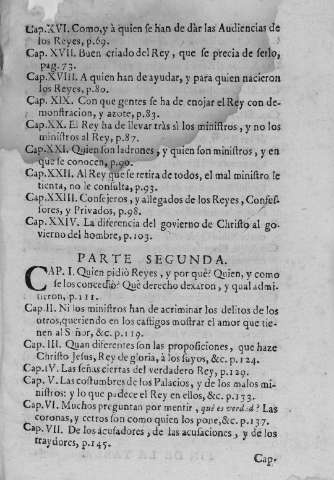 Cap.XVI. Como,y à quien se han de dàr las Audiencias de
los Reyes, p.69.
Cap. XVII. Buen criado del Rey, que se precia de serlo,
pag. 73.
Cap.XVIII. A quien han de ayudar, y para quien nacieron
los Reyes, p.80.
Cap. XIX. Con que gentes se ha de enojar el Rey con de-
monstracion, y azote, p.83.
Cap.XX. El Rey ha de llevar tràs sì los ministros, y no los
ministros al Rey, p.87.
Cap.XXI. Quien son ladrones, y quien son ministros, y en
que se conocen, p.90.
Cap.XXII. Al Rey que se retira de todos, el mal ministro le
tienta, no le consulta, p.93.
Cap.XXIII. Consejeros, y allegados de los Reyes, Confes-
sores, y Privados, p.98.
Cap.XXIV. La diferencia del govierno de Christo al go-
vierno del hombre, p.103.
PARTE SEGUNDA.
CAP. I. Quien pidiò Reyes, y por què? Quien, y como
se los concediò? Què derecho dexaron, y qual admi-
tieron, p.111.
Cap.II. Ni los ministros han de acriminar los delitos de los
otros,queriendo en los castigos mostrar el amor que tie-
nen al Señor, &c. p.119.
Cap. III. Quan diferentes son las proposiciones, que haze
Christo Jesus, Rey de gloria, à los suyos, &c. p.124.
Cap.IV. Las señas ciertas del verdadero Rey, p.129.
Cap. V. Las costumbres de los Palacios, y de los malos mi-
nistros: y lo que padece el Rey en ellos, &c. p.133.
Cap.VI. Muchos preguntan por mentir, què es verdad? Las
coronas, y cetros son como quien los pone,&c. p.137.
Cap. VII. De los acusadores, de las acusaciones, y de los
traydores, p.145.
Cap.